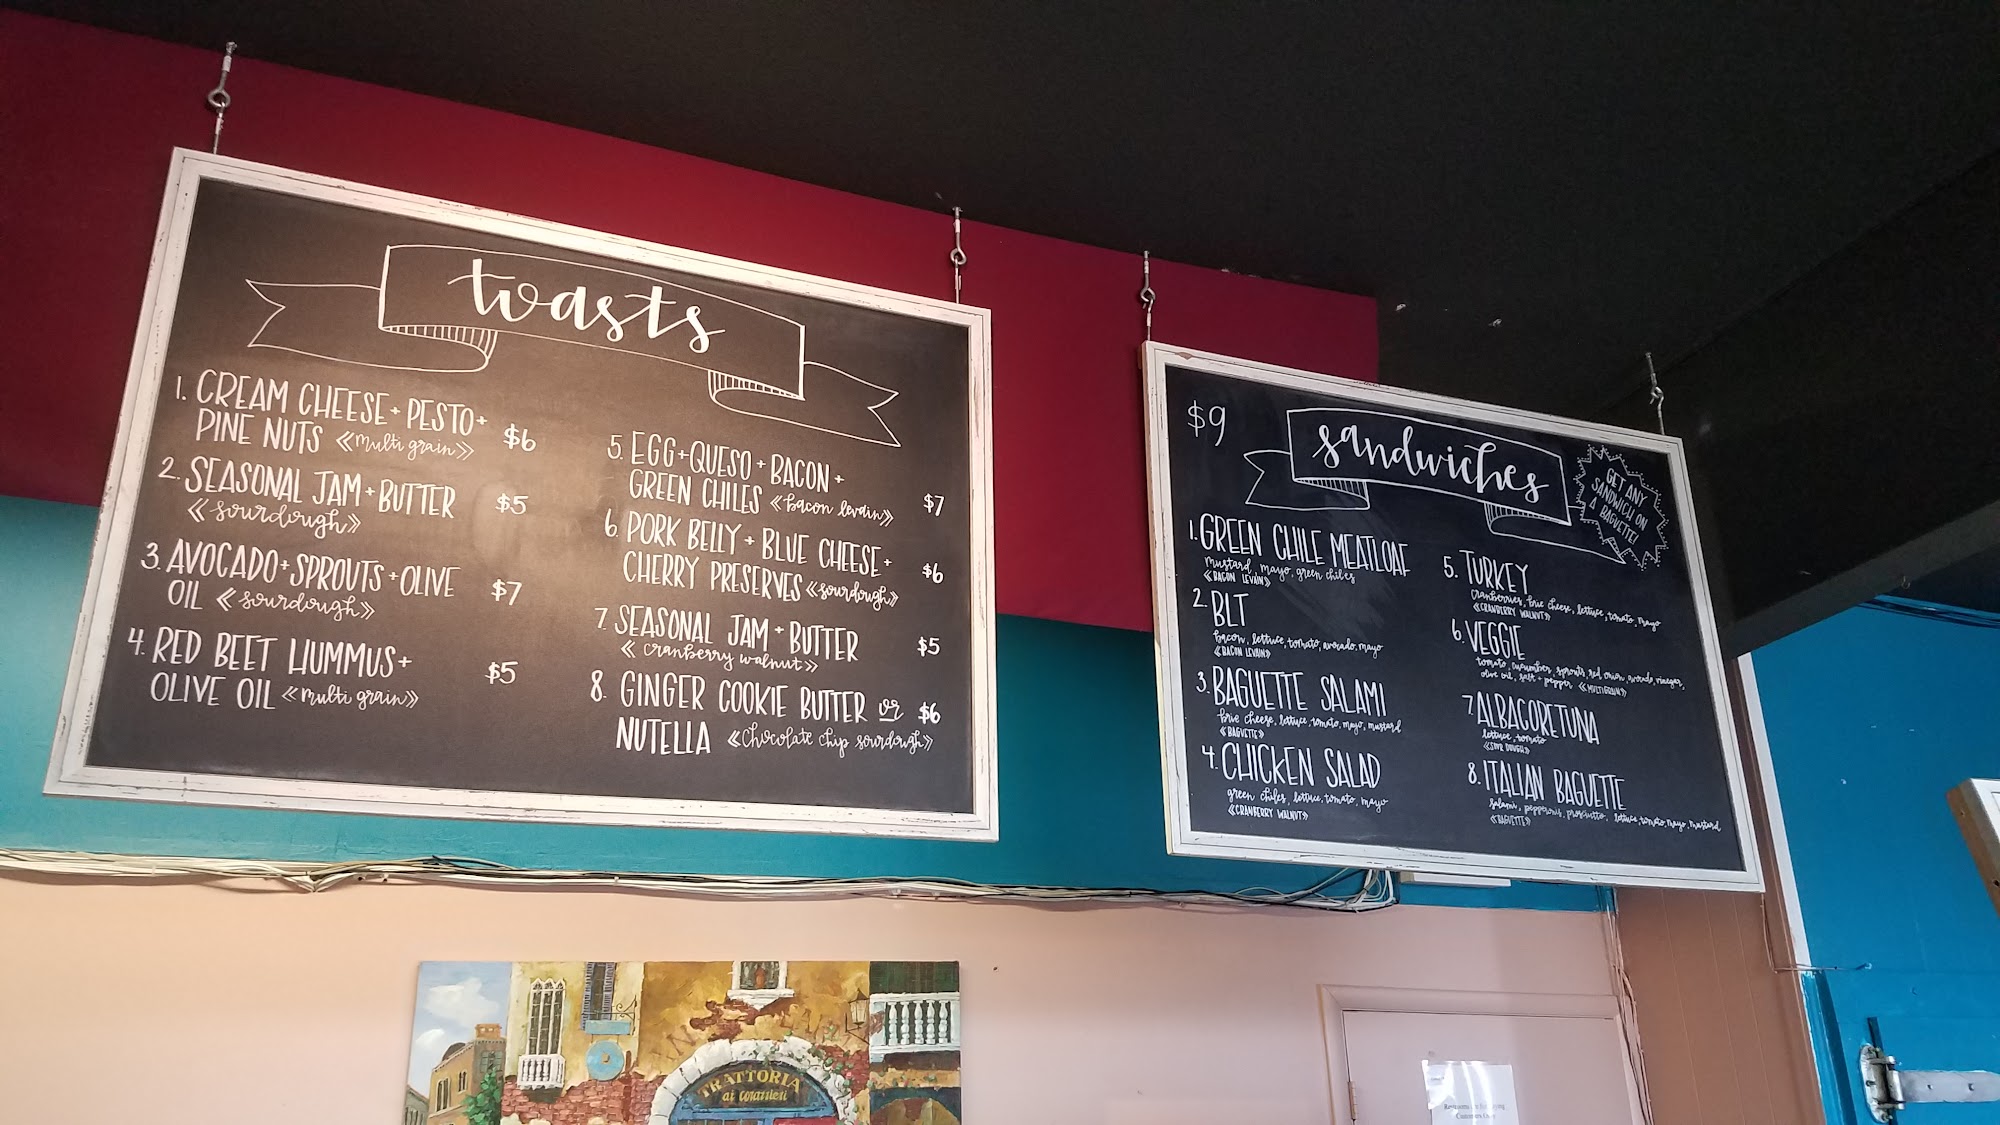 toasts
1. CREAM CHEESE + PESTO +
PINE NUTS «multi grain» $6
2. SEASONAL JAM + BUTTER $5
«sourdough»
3. AVOCADO + SPROUTS + OLIVE
OIL «sourdough» $7
4. RED BEET HUMMUS +
OLIVE OIL «multi grain» $5
5. EGG + QUESO + BACON +
GREEN CHILES «bacon levain» $7
6. PORK BELLY + BLUE CHEESE +
CHERRY PRESERVES «sourdough» $6
7. SEASONAL JAM + BUTTER $5
«cranberry walnut»
8. GINGER COOKIE BUTTER or $6
NUTELLA «chocolate chip sourdough»
$9
sandwiches
GET ANY
SANDWICH ON
A BAGUETTE!
1. GREEN CHILE MEATLOAF
mustard, mayo, green chiles
«BACON LEVAIN»
2. BLT
bacon, lettuce, tomato, avocado, mayo
«BACON LEVAIN»
3. BAGUETTE SALAMI
brie cheese, lettuce, tomato, mayo, mustard
«BAGUETTE»
4. CHICKEN SALAD
green chiles, lettuce, tomato, mayo
«CRANBERRY WALNUT»
5. TURKEY
Cranberries, brie cheese, lettuce, tomato, mayo
«CRANBERRY WALNUT»
6. VEGGIE
tomato, cucumber, sprouts, red onion, avocado, vinegar,
olive oil, salt + pepper «MULTIGRAIN»
7 ALBACORE TUNA
lettuce, tomato
«SOUR DOUGH»
8. ITALIAN BAGUETTE
salami, pepperoni, prosciutto, lettuce, tomato, mayo, mustard
«BAGUETTE»
TRATTORIA
Customers